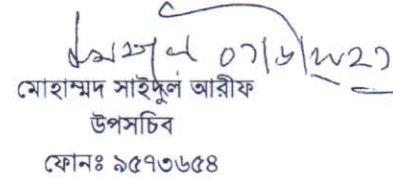 ০১/৬/২০২১
মোহাম্মদ সাইদুল আরীফ
উপসচিব
ফোনঃ ৯৫৭৩৬৫৪